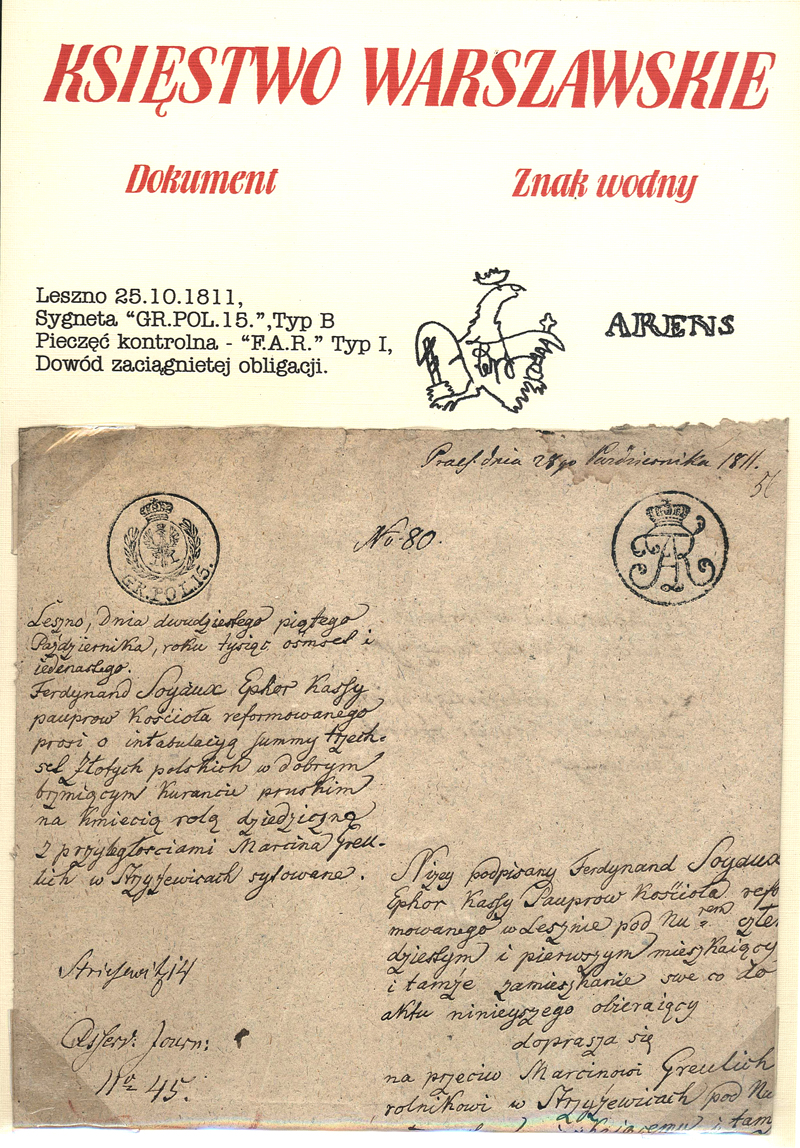 KSIĘSTWO WARSZAWSKIE
Dokument
Znak wodny
Leszno 25.10.1811,
Sygneta “GR.POL.15.”,Typ B
Pieczęć kontrolna - “F.A.R.” Typ I,
Dowód zaciągnietej obligacji.
ARENS
Praes. dnia 28go Października 1811.
56
GR.POL.15.
No. 80.
FAR
Leszno, Dnia dwudziestego piątego
Października, roku tysiąc ośmset i
iedenastego.
Ferdynand Soyaux Ephor Kassy
pauprow Kościoła reformowanego
prosi o intabulacyą summy trzech-
set Złotych polskich w dobrym
brzmiącym Kurancie pruskim
na Kmiecią rolą dziedziczną
z przyległościami Marcina Greu-
lich w Strzyżewicach sytowane.
Strisewitz 14
Asserv: Journ:
No 45.
Niżey podpisany Ferdynand Soyaux
Ephor Kassy Pauprow Kościoła refor
mowanego w Lesznie pod Nurem czter
dziestym i pierwszym mieszkaiący
i tamże zamieszkanie swe co do
aktu ninieyszego obieraiący
doprasza się
na przeciw Marcinowi Greulich
rolnikowi w Strzyżewicach pod Nu
i tam